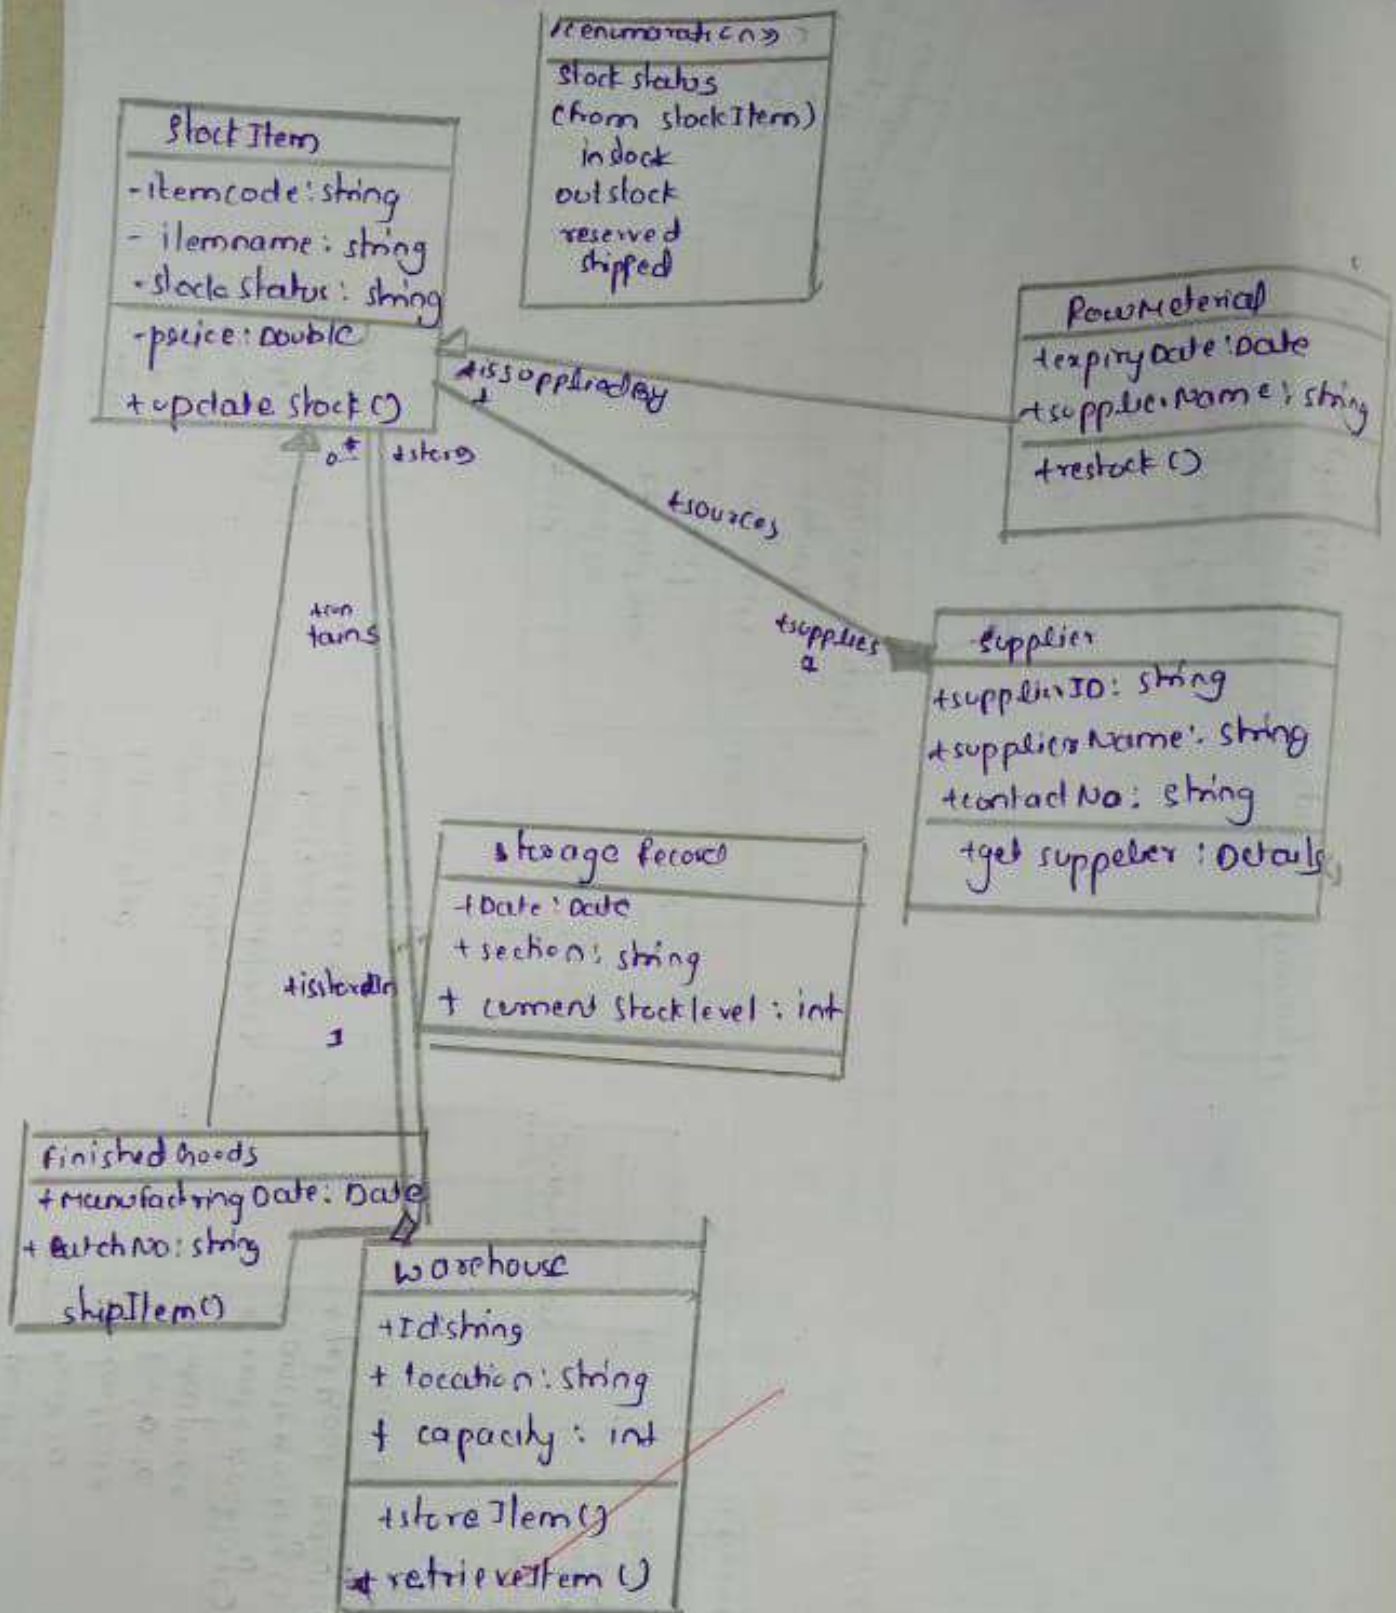 <<enumeration>>
Stock status
(from stockItem)
instock
outstock
reserved
shipped
StockItem
-itemcode: string
- itemname: string
-stock status: string
-price: Double
+update stock()
0..*
+stores
+issuppliedBy
1
+sources
+supplies
RawMeterial
+expiryDate: Date
+supplierName: string
+restock()
supplier
+supplierID: string
+supplierName: string
+contactNo: string
+get suppelier: Details
+con
tains
storage Record
+Date: Date
+section: string
+ current stocklevel: int
+isstoredIn
1
Finished Goods
+ManufactringDate: Date
+BatchNo: string
shipItem()
warehouse
+Id string
+ location: string
+ capacity: int
+storeItem()
+ retrieveItem()